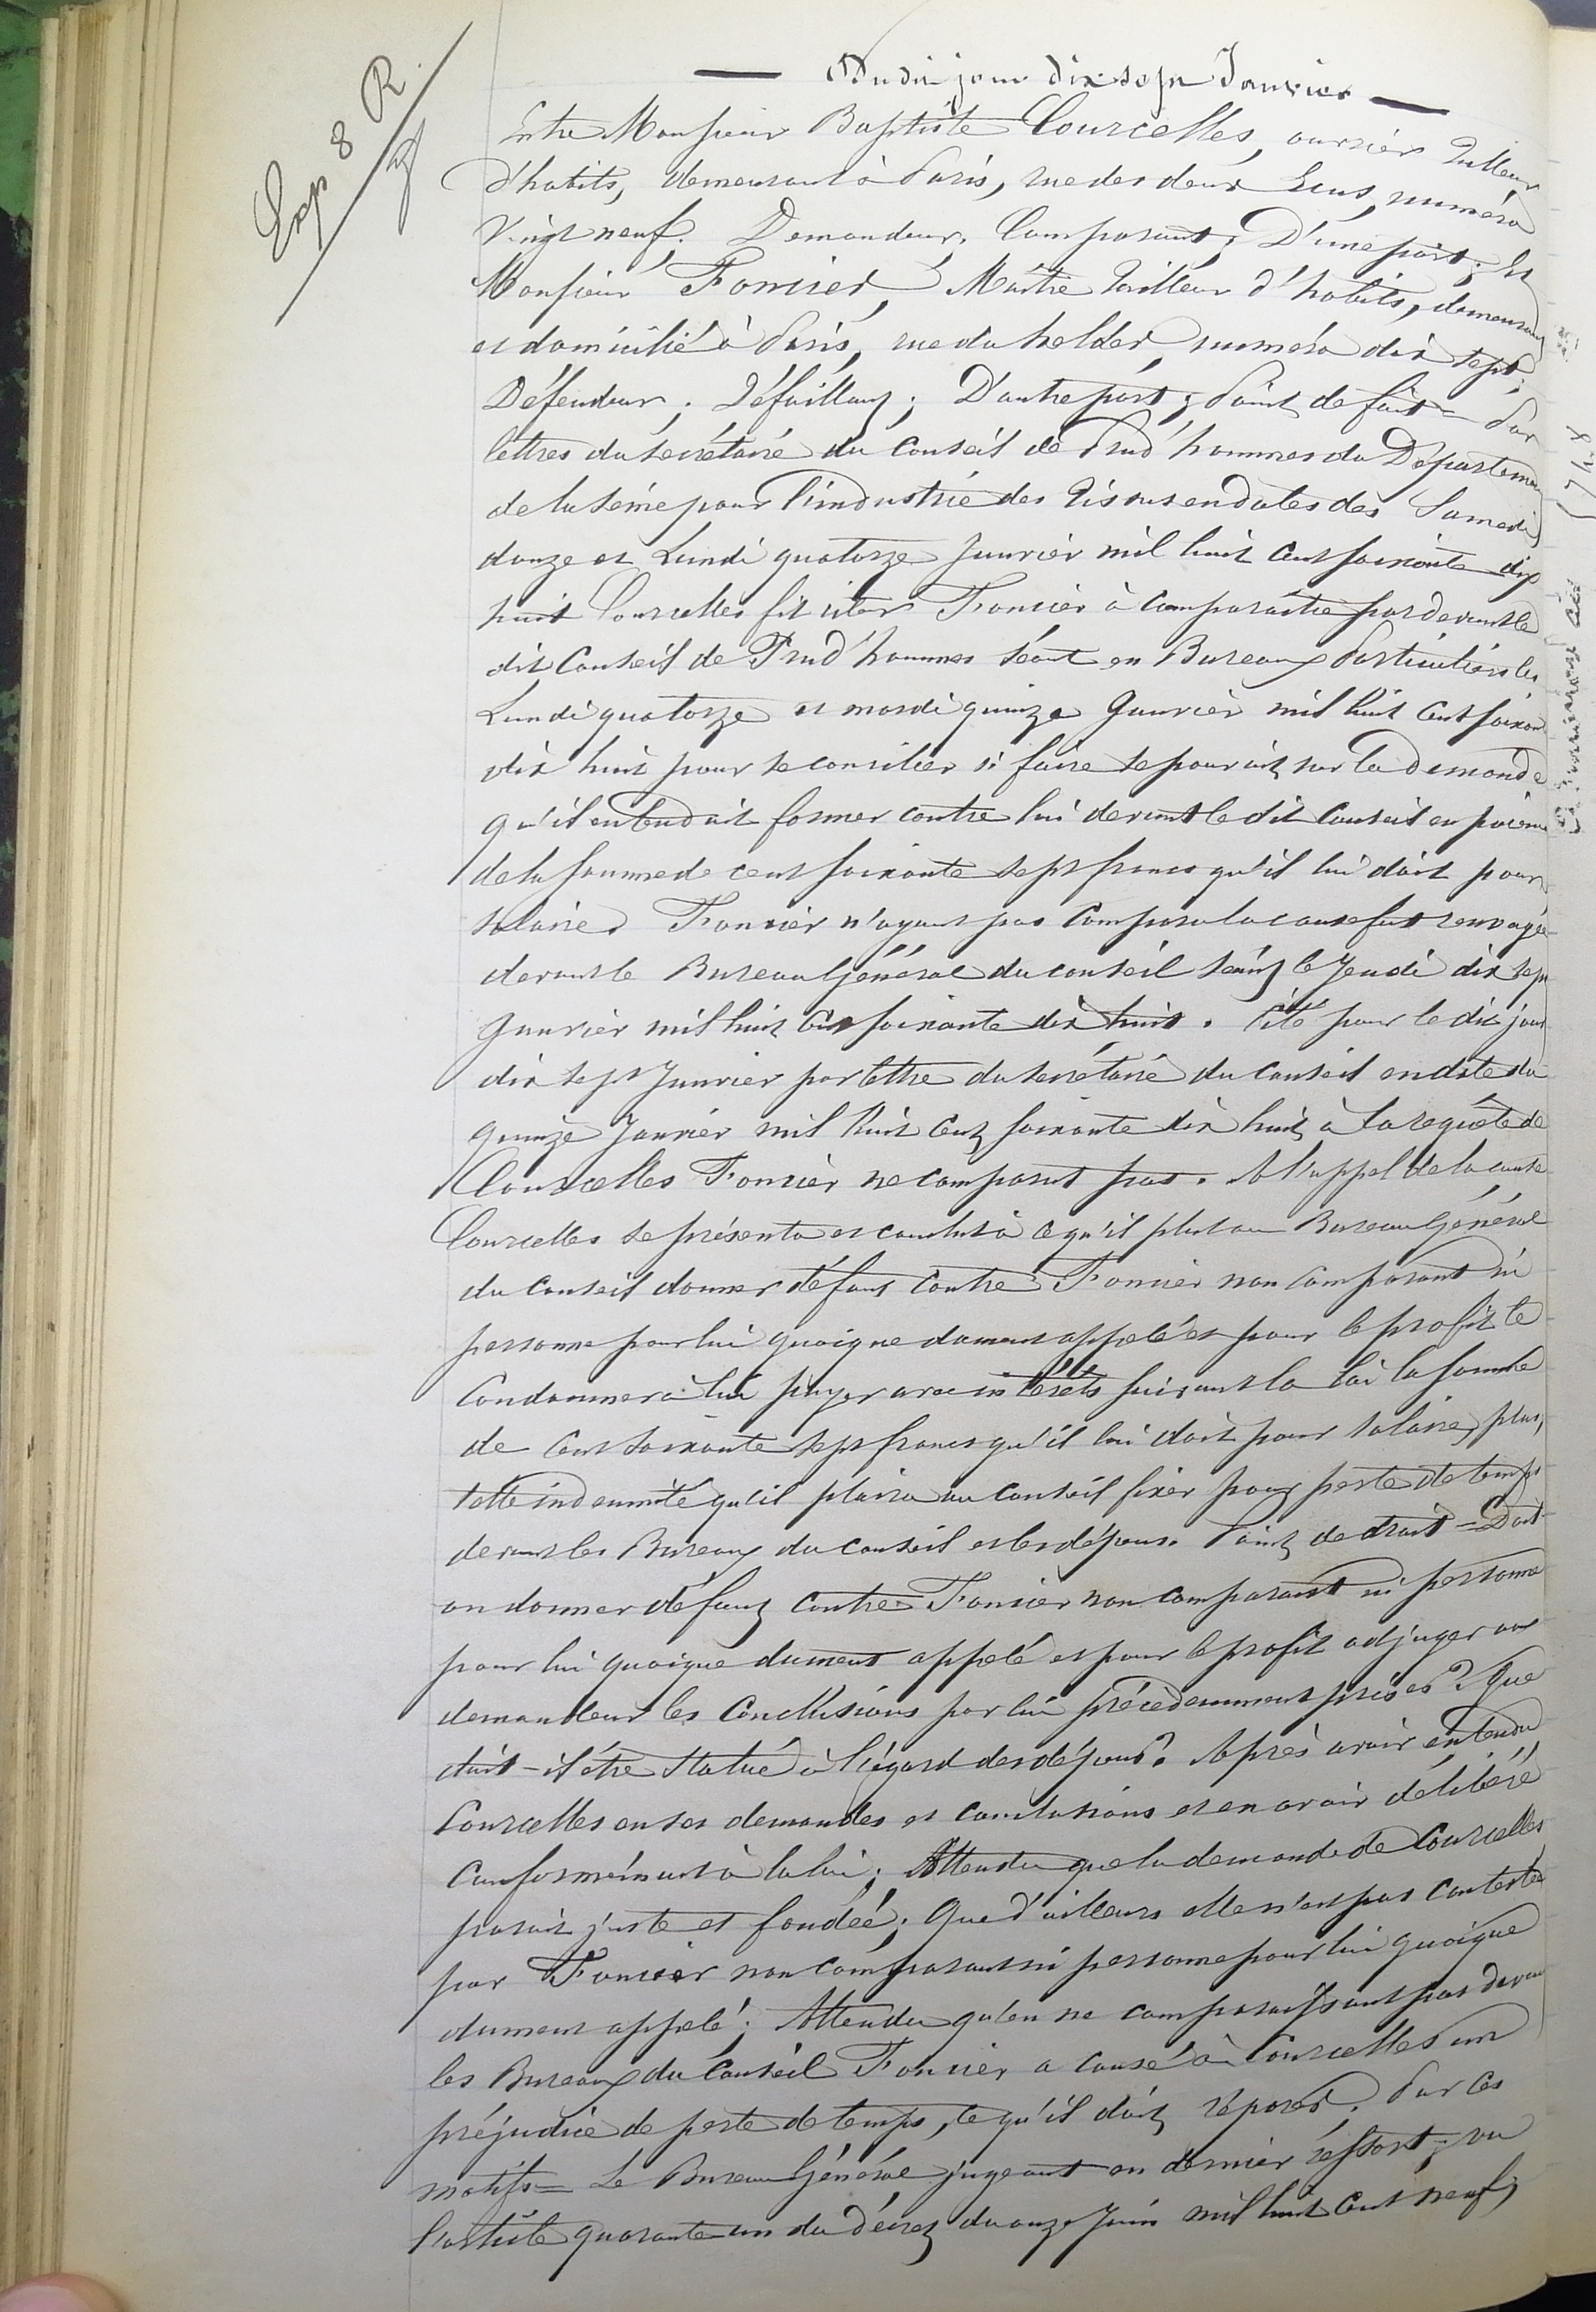 Exp 8 R.
— Du dit jour dix sept Janvier —
Entre Monsieur Baptiste Courcelles, ouvrier tailleur
d'habits, demeurant à Paris, rue des deux Ecus, numéro
Vingt neuf. Demandeur, Comparant; D'une part; Et
Monsieur Foncier, Maître tailleur d'habits, demeurant
et domicilié à Paris, rue du helder, numéro dix sept;
Défendeur; Défaillant; D'autre part; Point de fait = Par
lettres du secrétaire du Conseil de Prud'hommes du Département
de la Seine pour l'industrie des Tissus en dates des Samedi
douze et Lundi quatorze Janvier mil huit Cent soixante dix
huit Courcelles fit citer Foncier à Comparaitre par devant le
dit Conseil de Prud'hommes séant en Bureaux Particuliers les
Lundi quatorze et mardi quinze Janvier mil huit Cent soixante
dix huit pour se concilier si faire se pourait sur la demande
qu'il entendait former contre lui devant le dit Conseil en paiement
de la somme de cent soixante sept francs qu'il lui doit pour
salaire. Foncier n'ayant pas Comparu la cause fut renvoyée
devant le Bureau Général du conseil séant le Jeudi dix sept
Janvier mil huit Cent soixante dix huit. Cité pour le dit jour
dix sept Janvier par lettre du secrétaire du Conseil en date du
quinze Janvier mil huit Cent soixante dix huit, à la requête de
Courcelles Foncier ne comparut pas. A l'appel de la cause
Courcelles se présenta et conclut à ce qu'il plut au Bureau Général
du Conseil donner défaut contre Foncier non comparant ni
personne pour lui quoique dument appelé et pour le profit le
Condamner à lui payer avec intérêts suivant la loi la somme
de Cent soixante sept francs qu'il lui doit pour salaire, plus,
telle indemnité qu'il plaira au Conseil fixer pour perte de temps
devant les Bureaux du Conseil et les dépens. Point de droit = Doit-
on donner défaut contre Foncier non comparant ni personne
pour lui quoique dument appelé et pour le profit adjuger au
demandeur les Conclusions par lui précédemment prises? Que
doit-il être statué à l'égard des dépens? Après avoir entendu
Courcelles en ses demandes et conclusions et en avoir délibéré
Conformément à la loi; Attendu que la demande de Courcelles
parait juste et fondée; Que d'ailleurs elle n'est pas contestée
par Foncier non comparant ni personne pour lui quoique
dument appelé; Attendu qu'en ne comparaissant pas devant
les Bureaux du Conseil Foncier a causé à Courcelles un
préjudice de perte de temps, ce qu'il doit réparer. Par ces
motifs = Le Bureau Général jugeant en dernier ressort; vu
l'article quarante-un du décret du onze Juin mil huit Cent neuf,